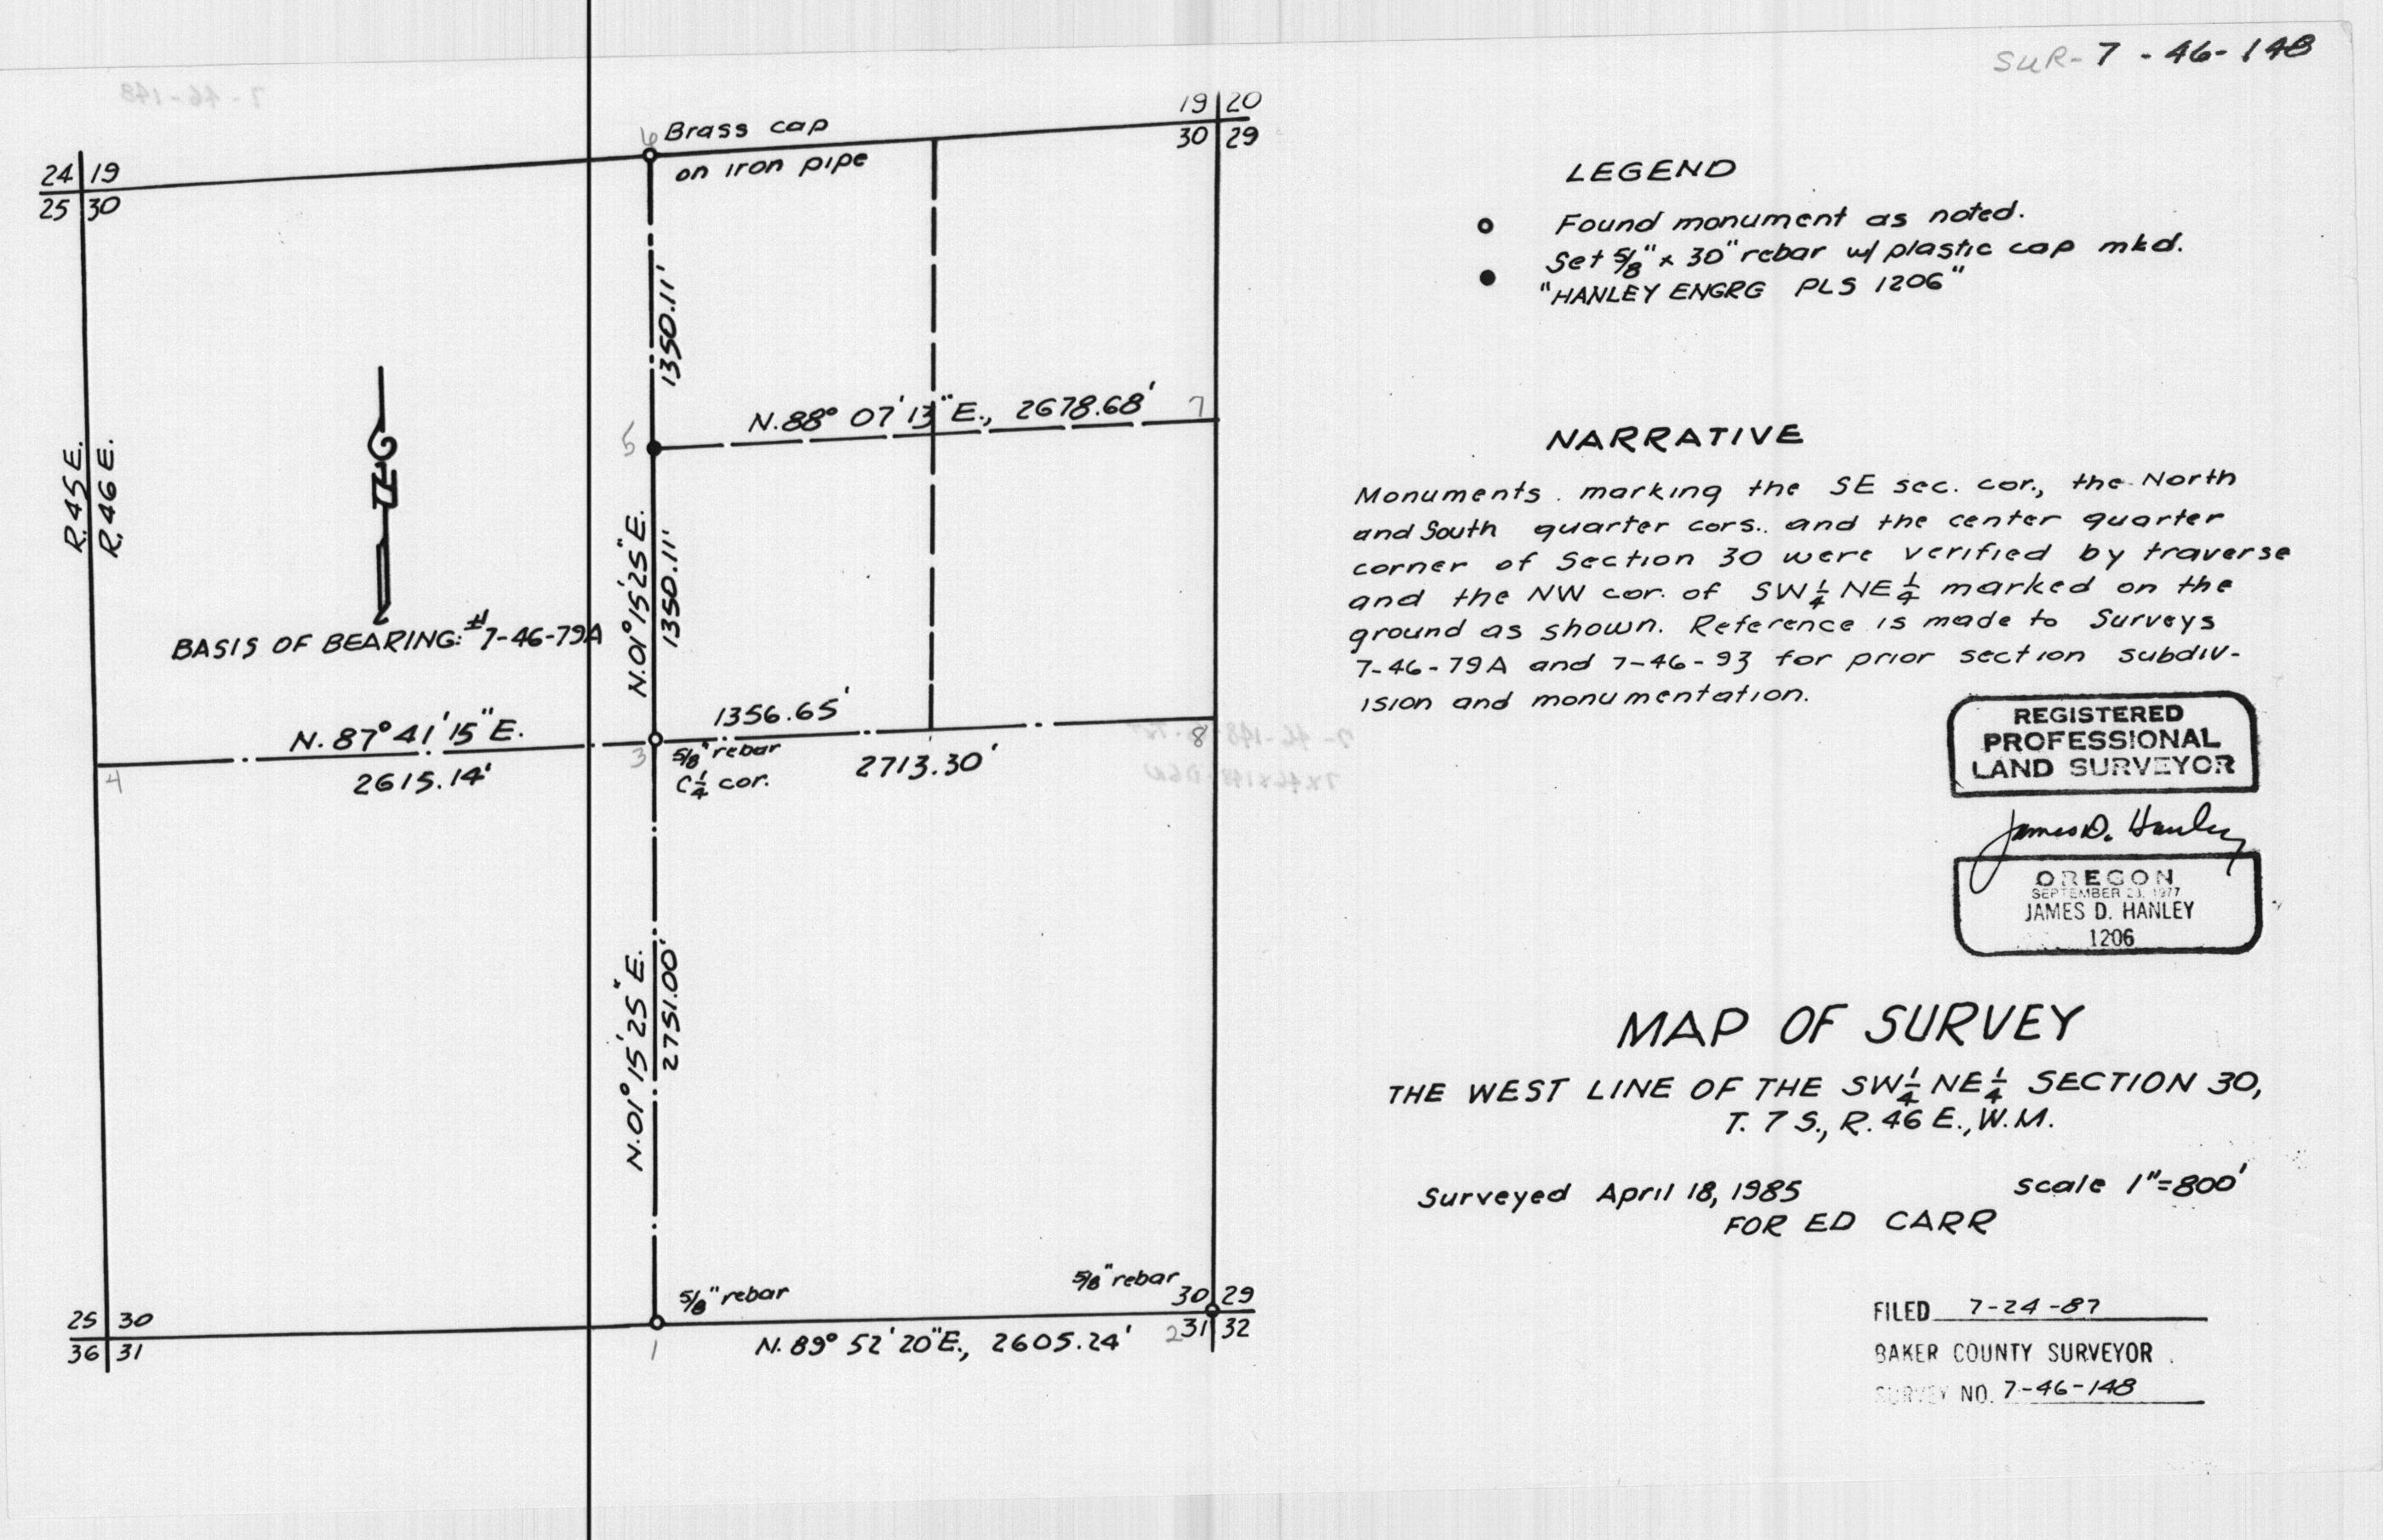 SUR-7-46-148
7-46-148
19 20
30 29
6 Brass cap
on iron pipe
24 19
25 30
1350.11'
N. 88° 07' 13" E., 2678.68'
7
5
R. 45 E.
R. 46 E.
N. 01° 15' 25" E.
1350.11'
BASIS OF BEARING: # 7-46-79A
N. 87° 41' 15" E.
2615.14'
4
1356.65'
3
5/8" rebar
C 1/4 cor.
2713.30'
8
N. 01° 15' 25" E.
2751.00'
5/8" rebar
5/8" rebar
25 30
36 31
30 29
31 32
1
2
N. 89° 52' 20" E., 2605.24'
LEGEND
Found monument as noted.
Set 5/8" x 30" rebar w/ plastic cap mkd.
"HANLEY ENGRG PLS 1206"
NARRATIVE
Monuments marking the SE sec. cor., the North
and South quarter cors. and the center quarter
corner of Section 30 were verified by traverse
and the NW cor. of SW 1/4 NE 1/4 marked on the
ground as shown. Reference is made to Surveys
7-46-79A and 7-46-93 for prior section subdiv-
ision and monumentation.
REGISTERED
PROFESSIONAL
LAND SURVEYOR
James D. Hanley
OREGON
SEPTEMBER 23, 1977
JAMES D. HANLEY
1206
MAP OF SURVEY
THE WEST LINE OF THE SW 1/4 NE 1/4 SECTION 30,
T. 7 S., R. 46 E., W.M.
Surveyed April 18, 1985
scale 1"=800'
FOR ED CARR
FILED 7-24-87
BAKER COUNTY SURVEYOR
SURVEY NO. 7-46-148